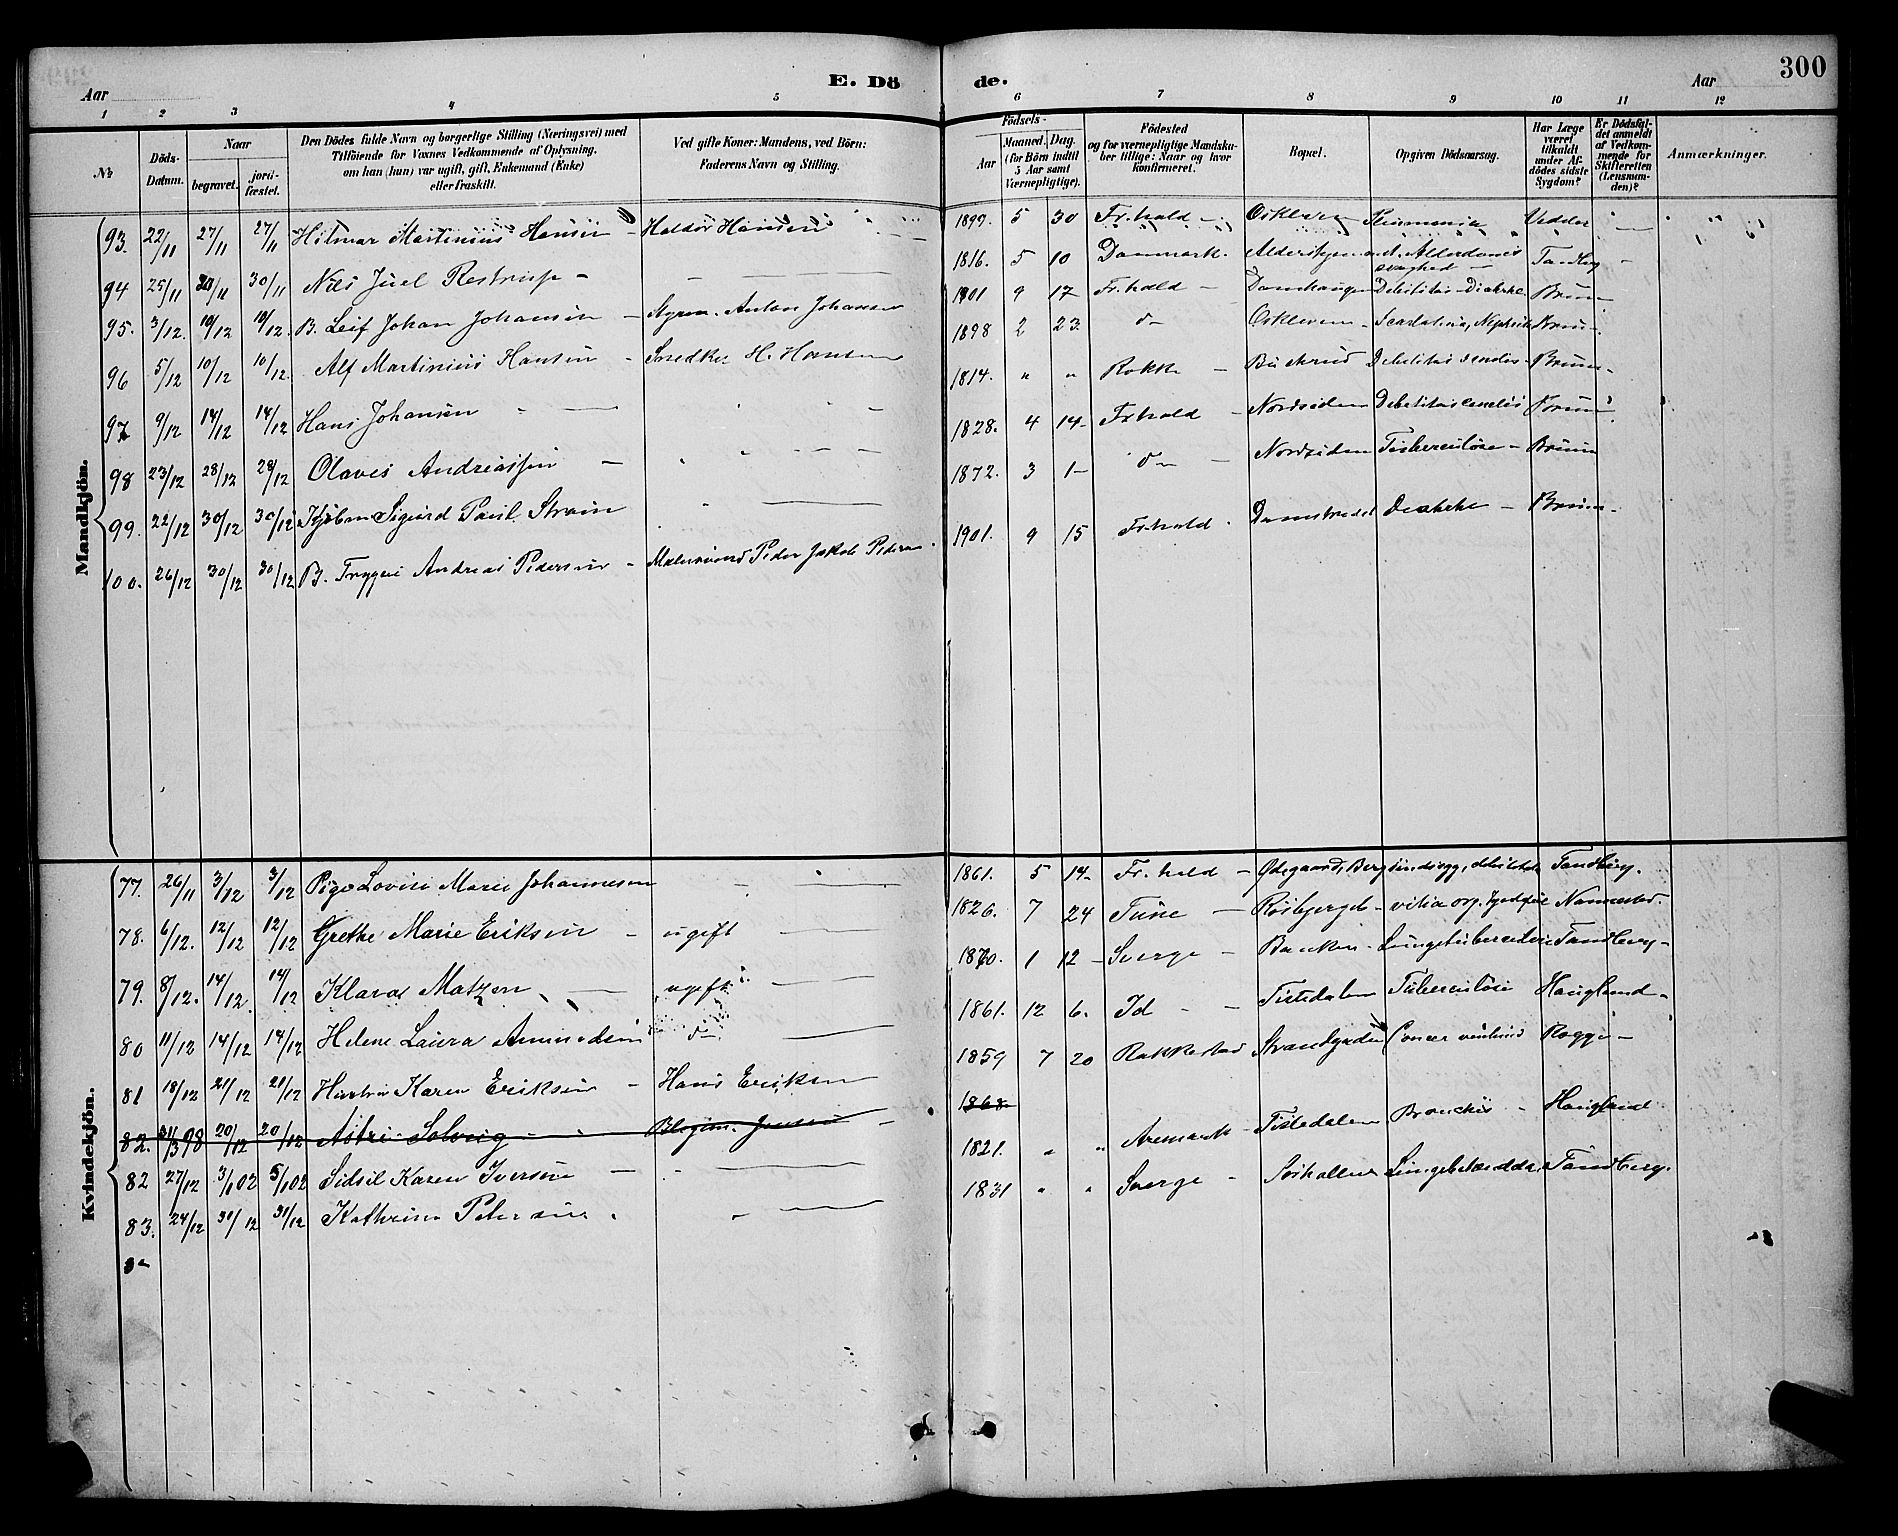 300
Aar E. Dö de. Aar
1 2 3 4 5 6 7 8 9 10 11 12
No
Döds-Datum.
Naar
begravet.
jord-fæstet.
Den Dödes fulde Navn og borgerlige Stilling (Næringsvei) med
Tilföiende for Voxnes Vedkommende af Oplysning,
om han (hun) var ugift, gift, Enkemand (Enke)
eller fraskilt.
Ved gifte Koner: Mandens, ved Börn:
Faderens Navn og Stilling.
Födsels-
Aar
Maaned. Dag.
(for Börn indtil
5 Aar samt
Værnepligtige).
Födested
og for værnepligtige Mandska-
ber tillige: Naar og hvor
konfirmeret.
Bopæl.
Opgiven Dödsaarsag.
Har Læge
været
tilkaldt
under Af-
dödes sidste
Sygdom?
Er Dödsfal-
det anmeldt
af Vedkom-
mende for
Skifteretten
(Lensman-
den)?
Anmærkninger.
Mandkjön.
93. 22/11 27/11 27/11 Hilmar Martinius Hansen - Haldor Hansen 1899. 5 30 Fr.hald - Oskleven
94 25/11 30/11 30/11 Nils Juel Restrup - 1816. 5 10 Danmark. Alderdoms svaghed Tandberg
95. 3/12. 10/12 10/12. B. Leif Johan Johansen - Styrm. Anton Johansen 1901 9 17 Fr.hald - Damhaugen Debilitas - Diarhe Bruun
96 5/12 10/12 10/12. Alf Martinius Hansen - Snedker H. Hansen 1898 2 23. do Oskleven - Scarlatina, Nephrit Bruun
97 9/12 14/12 14/12 Hans Johansen 1814. " " Rokke - Debilitas senilis - Bruun
98 23/12 28/12 28/12 Olaves Andreassen - 1828. 4 14 - Fr.hald - Nordsiden Debilitas senilis Bruun
99. 22/12 30/12 30/12 Sigurd Paul Strøm 1872. 3 1 - do - Nordsiden Tuberculose - Bruun
100. 26/12 30/12 30/12 B. Trygve Andreas Pedersen - Malersvend Peder Jakob Pedersen. 1901. 9 15 Fr.hald. Damstrædet Diarhe - Bruun
Kvindekjön.
77. 26/11 3/12 3/12 Pige Lovise Marie Johannesen 1861. 5 14 - Fr.hald - Ødegaard, Berg Tandberg.
78. 6/12. 12/12 12/12 Grethe Marie Eriksen - ugift 1826. 7 24 Tune - Røsbjerget - vitia org. Nannestad.
79. 8/12. 14/12. 14/12 Klara Matzen ugift 1870. 1 12 - Sverge - Banken - Lungetuberculose Tandberg -
80 11/12 14/12 14/12 Helene Laura Amundsen do 1861. 12 6. Id - Tistedalen Tuberculose Hauglund -
81 18/12 21/12 21/12 Hustru Karen Eriksen - Hans Eriksen 1859 7 20 Rakkestad Strandgaden Cancer ventriculi Rogge -
82. 31/3 98 20/12 20/12 Astri Solveig - Blegem. Jensen 1868
82 27/12 3/1 02 5/1 02 Sidsel Karen Iversen - 1821. " " Aremark - Tistedalen Bronchis - Hauglund
83. 24/12 31/12 31/12 Kathrine Petersen. 1831 " " Sverge - Sørhallen Lungebetændelse Tandberg.